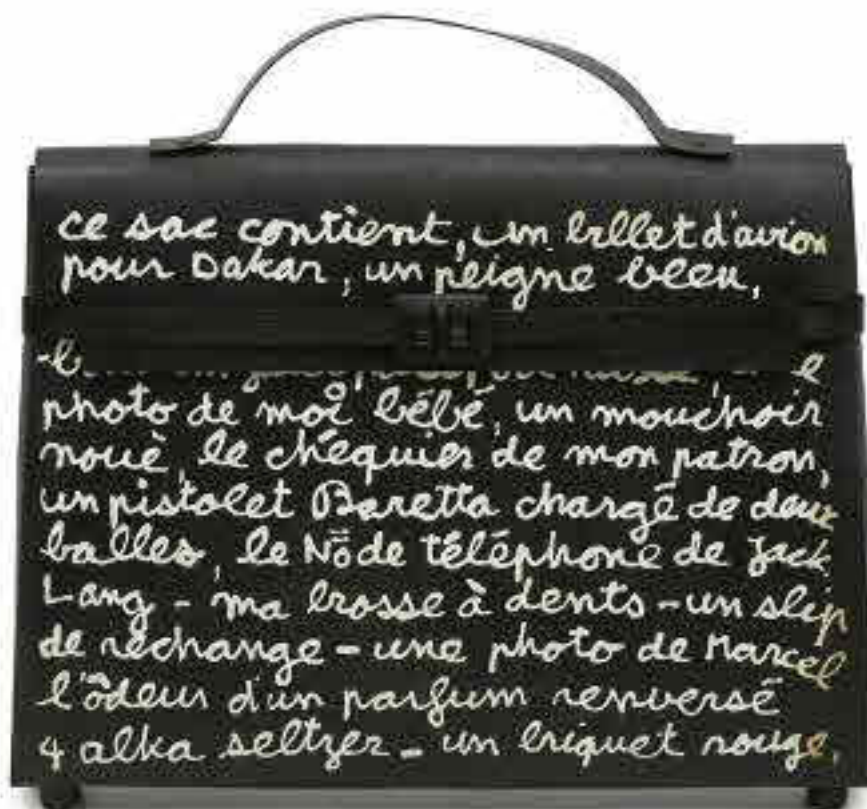 ce sac contient, un billet d'avion
pour Dakar, un peigne bleu,
photo de moi bébé, un mouchoir
noué, le chéquier de mon patron,
un pistolet Baretta chargé de deux
balles, le Nö de téléphone de Jack
Lang - ma brosse à dents - un slip
de rechange - une photo de Marcel
l'ôdeur d'un parfum renversé
4 alka seltzer - un briquet rouge,